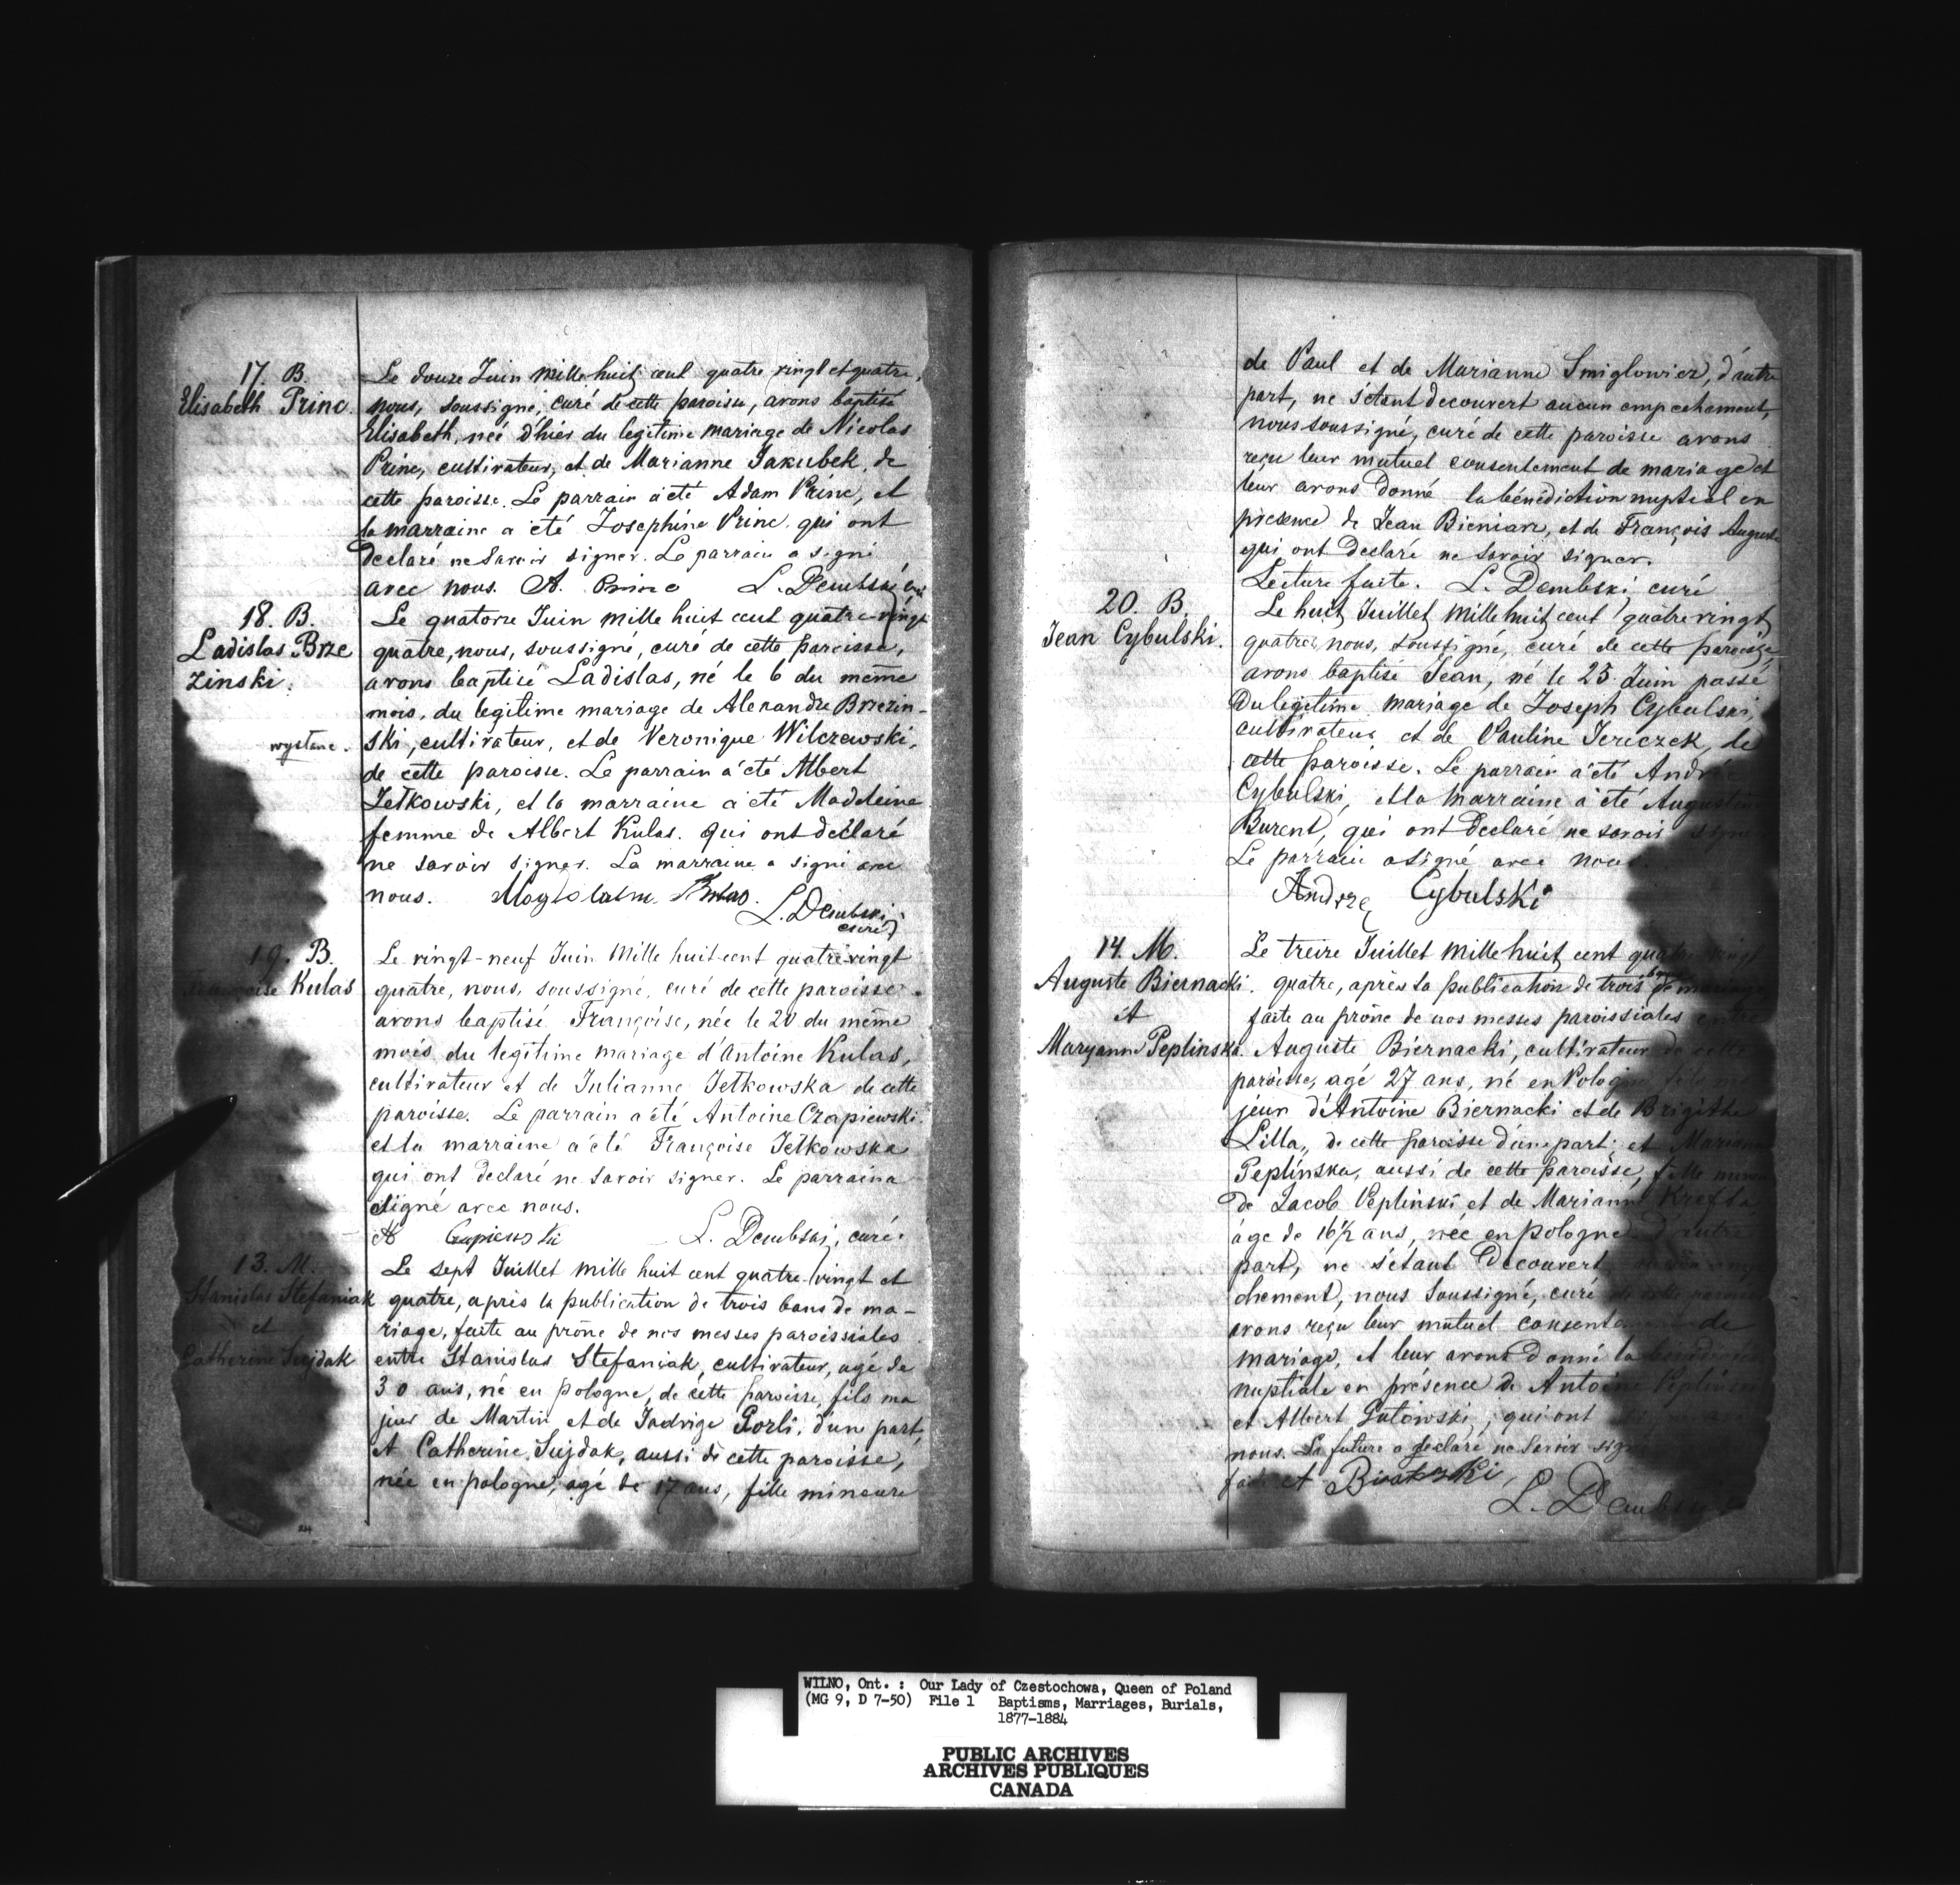 17. B.
Elisabeth Princ.
Le douze Juin mille huit cent quatre vingt et quatre,
nous, soussigné, curé de cette paroisse, avons baptisé
Elisabeth, neé d'hier du legitime mariage de Nicolas
Princ, cultivateur, et de Marianne Jakubek, de
cette paroisse. Le parrain a été Adam Princ, et
la marraine a été Josephine Princ qui ont
declaré ne savoir signer. Le parrain a signé
avec nous. A. Princ L. Dembski curé
18. B.
Ladislas Brze
zinski.
wystane.
Le quatorze Juin mille huit cent quatre vingt
quatre, nous, soussigné, curé de cette paroisse,
avons baptisé Ladislas, né le 6 du même
mois, du legitime mariage de Alexandre Brzezin-
ski, cultivateur, et de Veronique Wilczewski,
de cette paroisse. Le parrain a été Albert
Jetkowski, et la marraine a été Madeleine
femme de Albert Kulas. qui ont declaré
ne savoir signer. La marraine a signé avec
nous.
L. Dembski
curé
19. B.
Kulas
Le vingt-neuf Juin mille huit cent quatre vingt
quatre, nous, soussigné, curé de cette paroisse
avons baptisé Françoise, née le 20 du même
mois du legitime mariage d'Antoine Kulas,
cultivateur et de Julianne Jetkowska de cette
paroisse. Le parrain a été Antoine Czapiewski
et la marraine a été Françoise Jetkowska
qui ont declaré ne savoir signer. Le parrain a
signé avec nous.
A Czapiewski L. Dembski, curé.
13. M.
Stanislas Stefaniak
et
Catherine Sujdak
Le sept Juillet mille huit cent quatre vingt et
quatre, après la publication de trois bans de ma-
riage, faite au prône de nos messes paroissiales
entre Stanislas Stefaniak, cultivateur, agé de
30 ans, né en pologne, de cette paroisse, fils ma
jeur de Martin et de Jadvige Gorli, d'un part,
et Catherine Sujdak, aussi de cette paroisse,
née en pologne, agé de 17 ans, fille mineure
de Paul et de Marianne Smiglowicz, d'autre
part, ne s'étant decouvert aucun empechement,
nous soussigné, curé de cette paroisse avons
reçu leur mutuel consentement de mariage et
leur avons donné la bénédiction nuptial en
presence de Jean Bieniarz, et de François Auguste
qui ont declaré ne savoir signer.
Lecture faite. L. Dembski, curé
20. B.
Jean Cybulski.
Le huit Juillet mille huit cent quatre vingt
quatre, nous, soussigné, curé de cette paroisse,
avons baptisé Jean, né le 23 Juin passé
du legitime mariage de Joseph Cybulski,
cultivateur et de Pauline Jericzek, de
cette paroisse. Le parrain a été André
Cybulski, et la marraine a été
Burent, qui ont declaré ne savoir
Le parrain a signé avec nous.
Andrze Cybulski
14. M.
Auguste Biernacki.
et
Maryanne Peplinska.
Le treize Juillet mille huit cent quatre vingt
quatre, après la publication de trois bans de mariage
faite au prône de nos messes paroissiales entre
Auguste Biernacki, cultivateur de cette
paroisse, agé 27 ans, né en Pologne
jeur d'Antoine Biernacki et de Brigithe
Lilla, de cette paroisse d'une part; et
Peplinska, aussi de cette paroisse, fille
de Jacob Peplinski et de Marianne Krefta
âge de 16½ ans, née en pologne d'autre
part, ne s'étant decouvert
chement, nous soussigné, curé de cette
avons reçu leur mutuel de
mariage, et leur avons donné la
nuptiale en présence de Antoine
et Albert Gutowski, qui ont
nous. La future a declaré ne savoir
L. Dembski
WILNO, Ont. : Our Lady of Czestochowa, Queen of Poland
(MG 9, D 7-50) File 1 Baptisms, Marriages, Burials,
1877-1884
PUBLIC ARCHIVES
ARCHIVES PUBLIQUES
CANADA